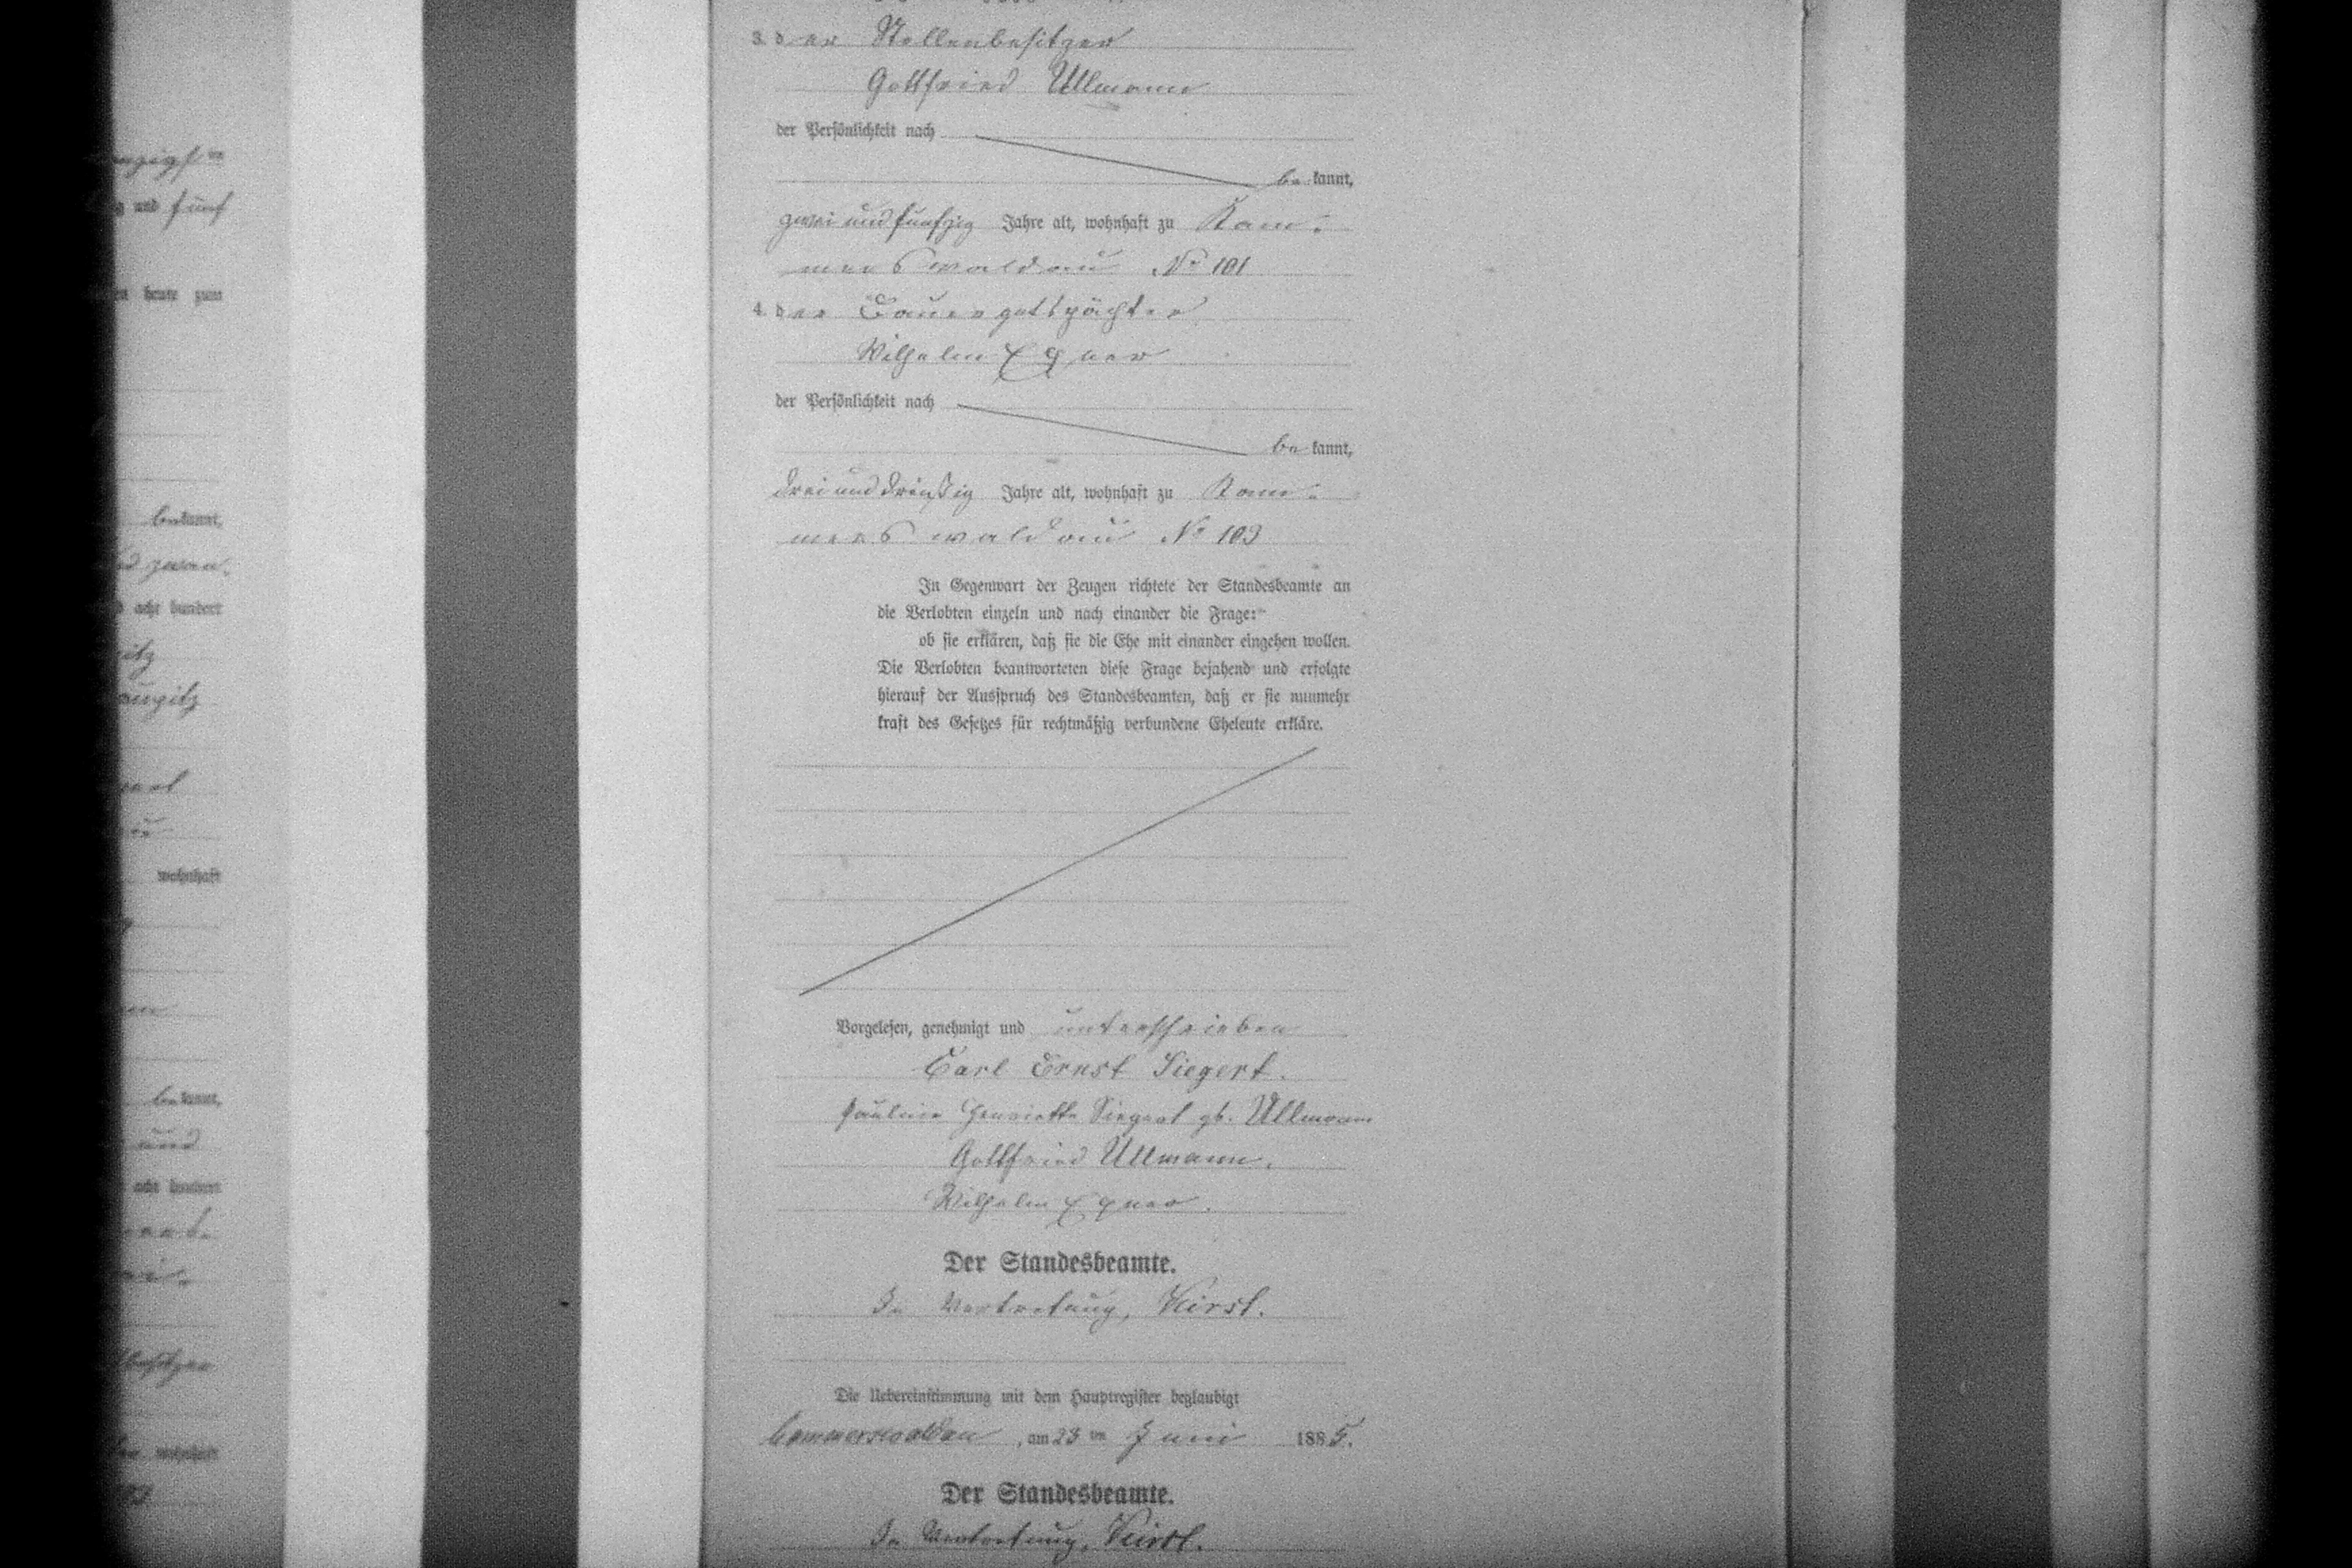 nzigsten
g und fünf
heute zum
bekannt,
d zwan-
acht hundert
itz
wohnhaft
bekannt,
und
acht hundert
besitzer
wohnhaft
3. der Stellenbesitzer
Gottfried Ullmann
der Persönlichkeit nach
bekannt,
zwei und fünfzig Jahre alt, wohnhaft zu Kam-
merswaldau No 101
4. der Bauergutspächter
Wilhelm Exner
der Persönlichkeit nach
bekannt,
drei und dreißig Jahre alt, wohnhaft zu Kam-
merswaldau No 103
In Gegenwart der Zeugen richtete der Standesbeamte an
die Verlobten einzeln und nach einander die Frage:
ob sie erklären, daß sie die Ehe mit einander eingehen wollen.
Die Verlobten beantworteten diese Frage bejahend und erfolgte
hierauf der Ausspruch des Standesbeamten, daß er sie nunmehr
kraft des Gesetzes für rechtmäßig verbundene Eheleute erkläre.
Vorgelesen, genehmigt und unterschrieben
Carl Ernst Siegert.
Pauline Henriette Siegert gb. Ullmann
Gottfried Ullmann.
Wilhelm Exner.
Der Standesbeamte.
In Vertretung,
Die Uebereinstimmung mit dem Hauptregister beglaubigt
Cammerswaldau, am 23ten Juni 1885.
Der Standesbeamte.
In Vertretung,